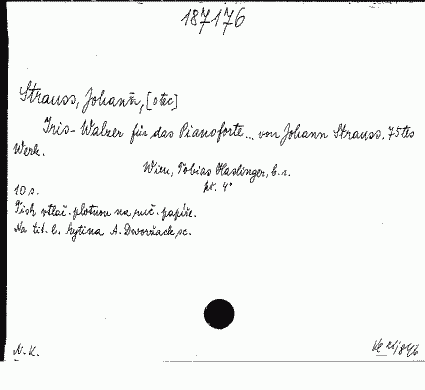 187176
Strauss, Johann, [otec]
Iris-Walzer für das Pianoforte... von Johann Strauss. 75tes
Werk.
Wien, Tobias Haslinger, b.r.
př. 4°
10 s.
Tisk vtlač. plotnou na ruč. papíře.
Na tit. l. kytina A. Dworžack sc.
N.K.